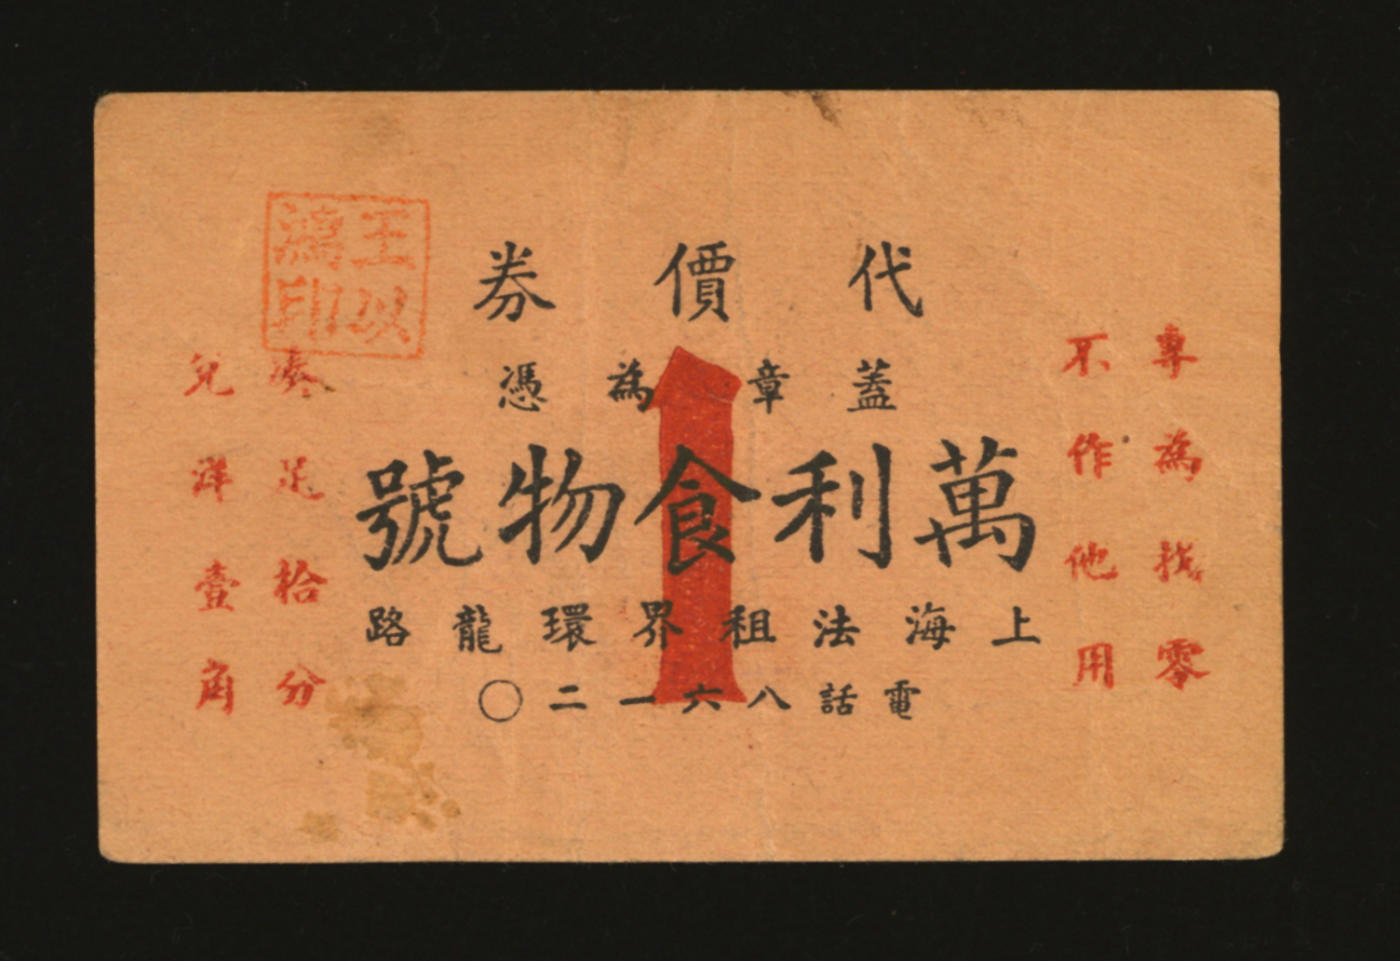 代價券
蓋章為憑
萬利食物號
上海法租界環龍路
電話八六一二〇
專為找零
不作他用
湊足拾分
兌洋壹角
1
王以
鴻印